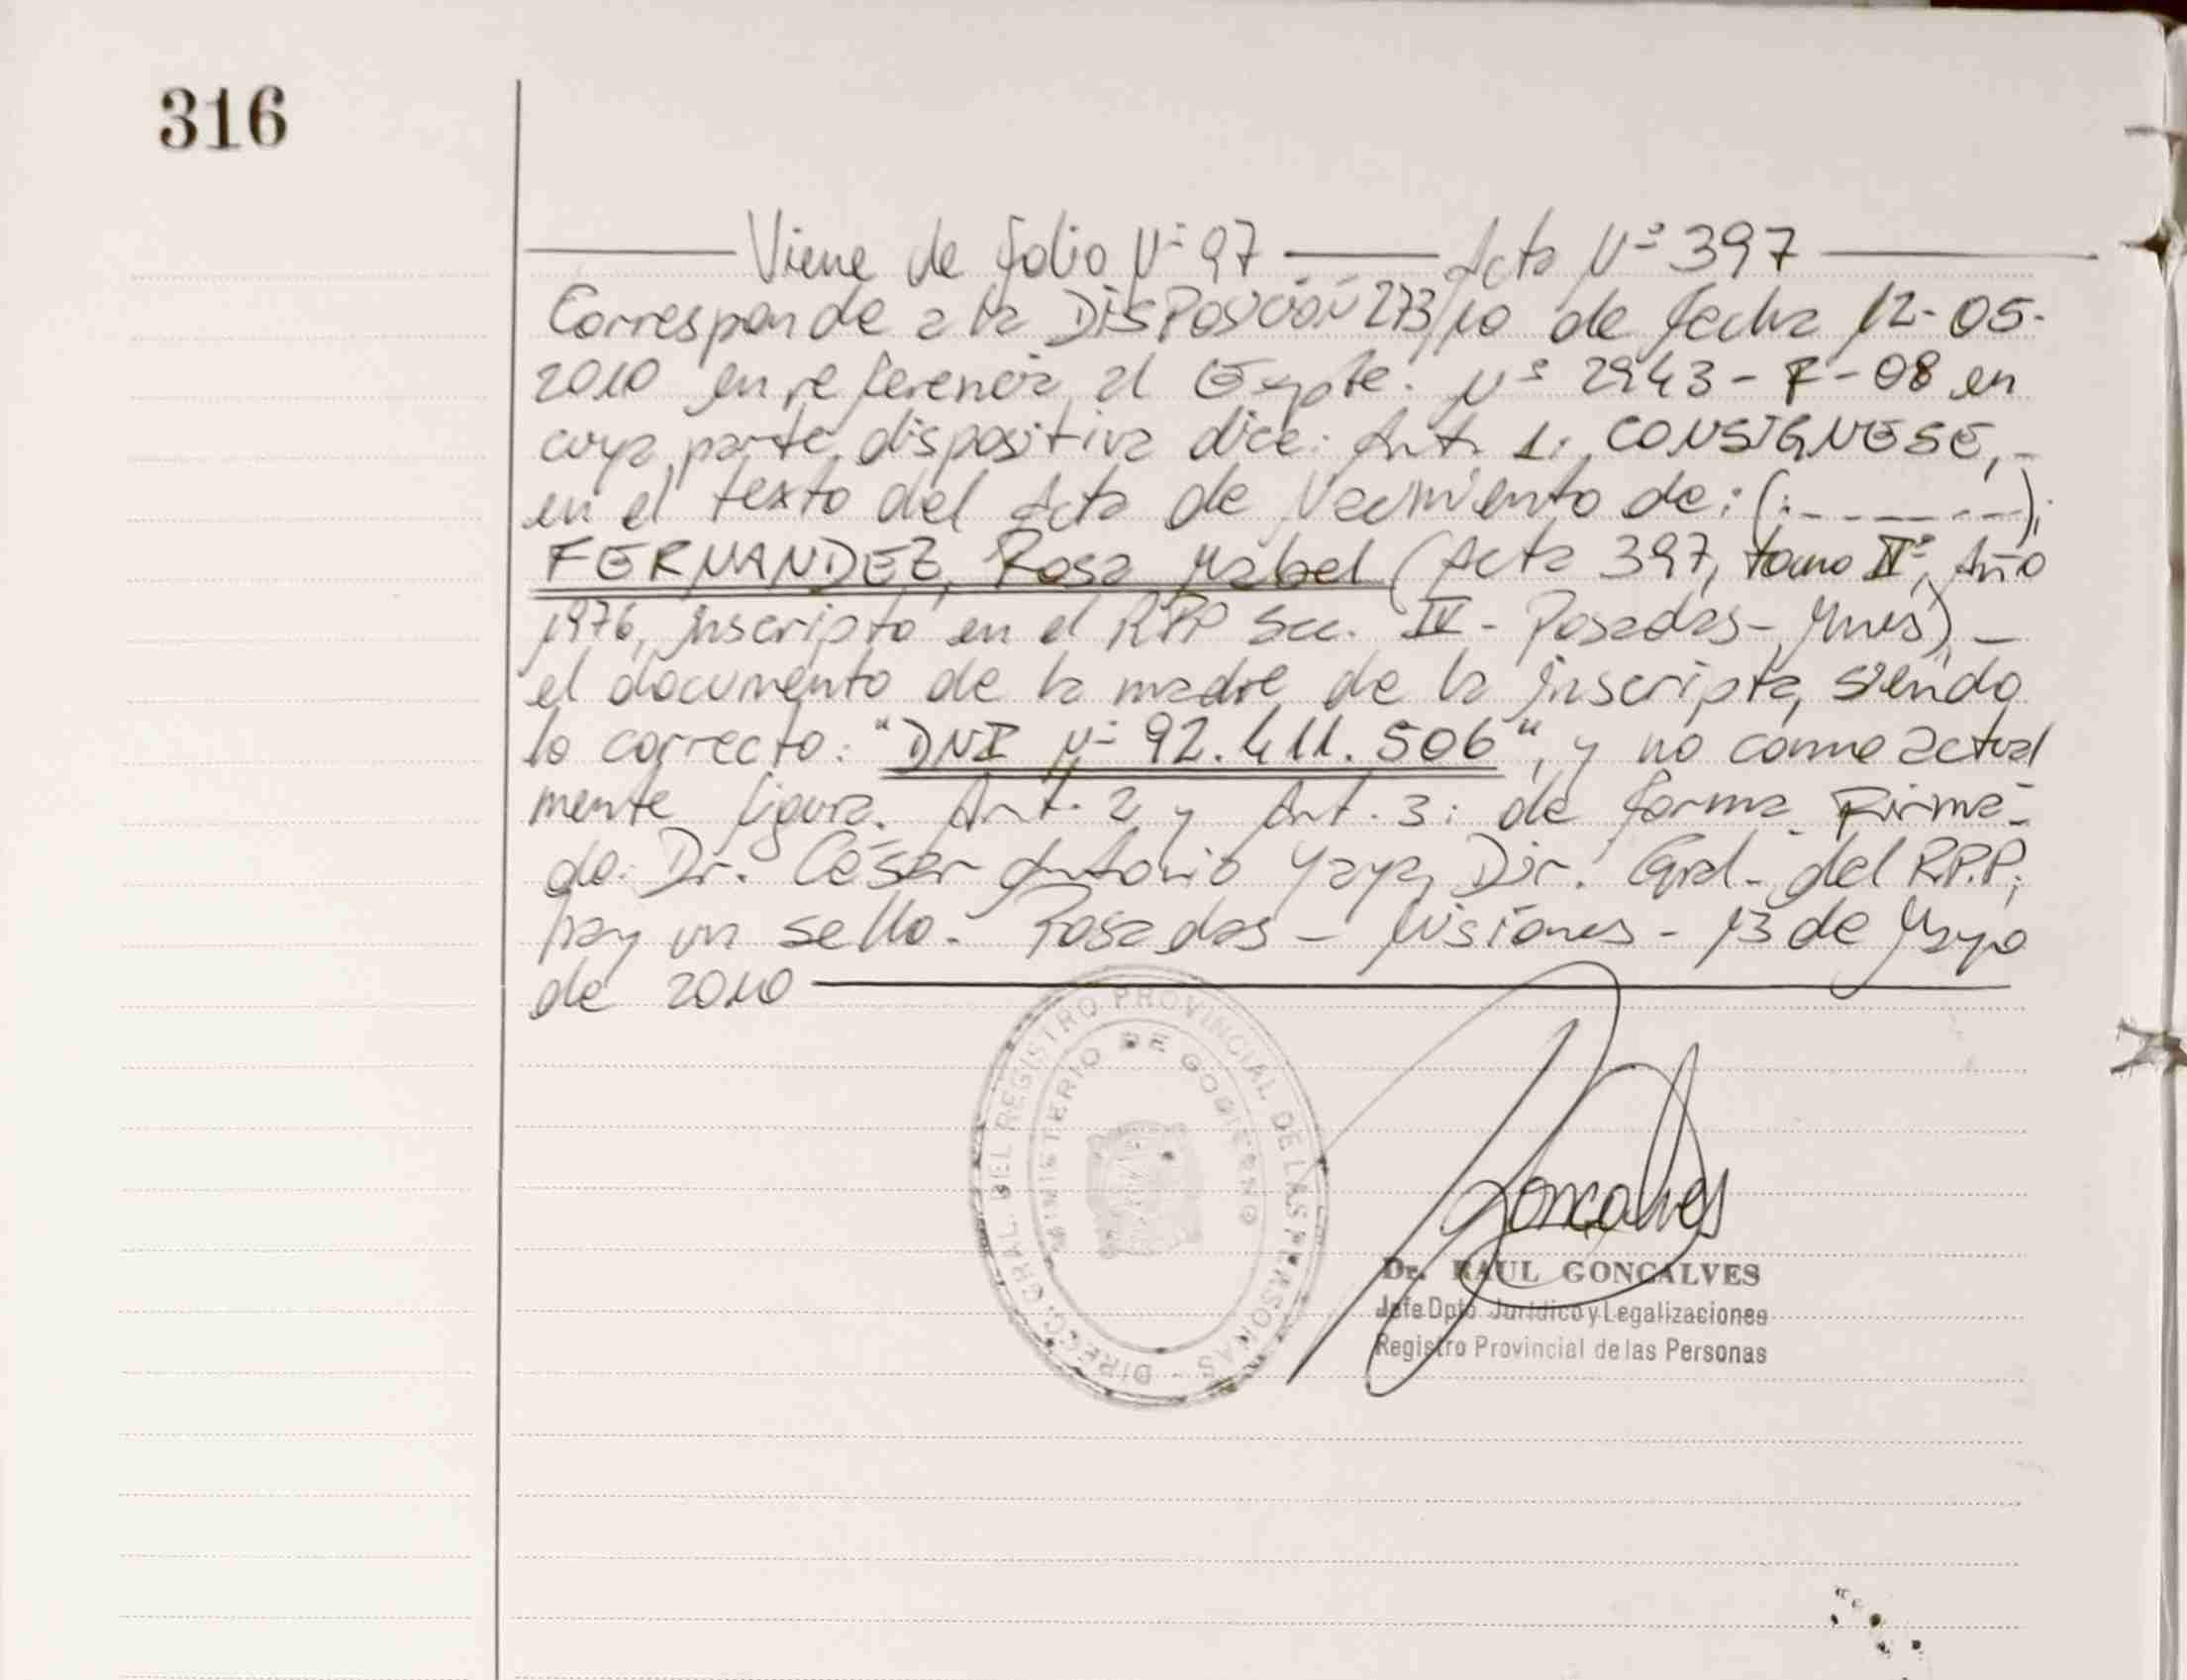 316
Viene de folio Nº 97 Acta Nº 397
Corresponde a la DISPOSICIÓN 273/10 de fecha 12-05-
2010 en referencia al Expte. Nº 2943-F-08 en
cuya parte dispositiva dice: Art. 1: CONSIGNESE,-
en el texto del Acta de Nacimiento de: (:-------);
FERNANDEZ, Rosa Mabel (Acta 397, tomo IIº, Año
1976, inscripto en el RPP Sec. IV - Posadas - Mnes)-
el documento de la madre de la inscripta, siendo
lo correcto: "DNI Nº 92.411.506", y no como actual
mente figura. Art. 2 y Art. 3: de forma. Firma-
do: Dr. César Antonio Yaya, Dir. Gral. del R.P.P;
hay un sello. Posadas - Misiones - 13 de Mayo
de 2010
DIRECC. GRAL. DEL REGISTRO PROVINCIAL DE LAS PERSONAS -
MINISTERIO DE GOBIERNO
Goncalves
Dr. RAUL GONCALVES
Jefe Dpto. Jurídico y Legalizaciones
Registro Provincial de las Personas